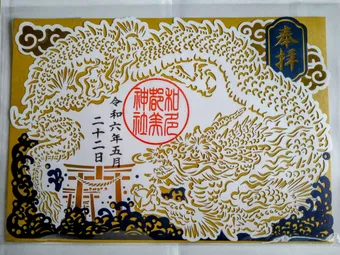 奉拝
和氣
都美
神社
令和六年五月
二十二日